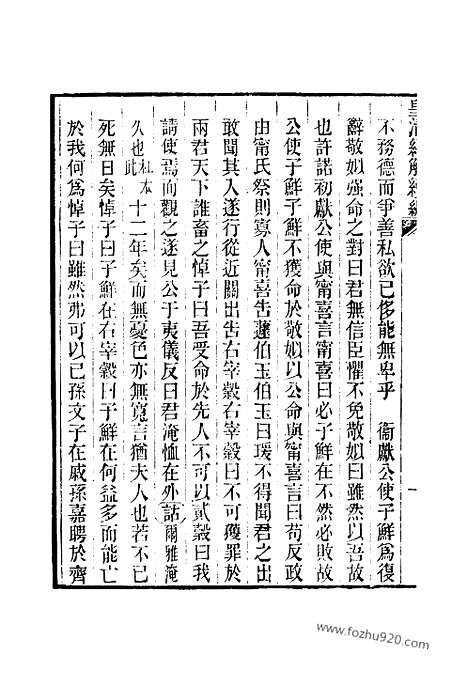 皇清經解續編
不務德而爭善私欲已侈能無卑乎　衞獻公使子鮮爲復
辭敬姒强命之對曰君無信臣懼不免敬姒曰雖然以吾故
也許諾初獻公使與甯喜言甯喜曰必子鮮在不然必敗故
公使子鮮子鮮不獲命於敬姒以公命與甯喜言曰苟反政
由甯氏祭則寡人甯喜告蘧伯玉伯玉曰瑗不得聞君之出
敢聞其入遂行從近關出告右宰穀右宰穀曰不可獲罪於
兩君天下誰畜之悼子曰吾受命於先人不可以貳穀曰我
請使焉而觀之遂見公于夷儀反曰君淹恤在外話爾雅淹
久也私本此十二年矣而無憂色亦無寬言猶夫人也若不已
死無日矣悼子曰子鮮在右宰穀曰子鮮在何益多而能亡
於我何爲悼子曰雖然弗可以已孫文子在戚孫嘉聘於齊
www.fozhu920.com